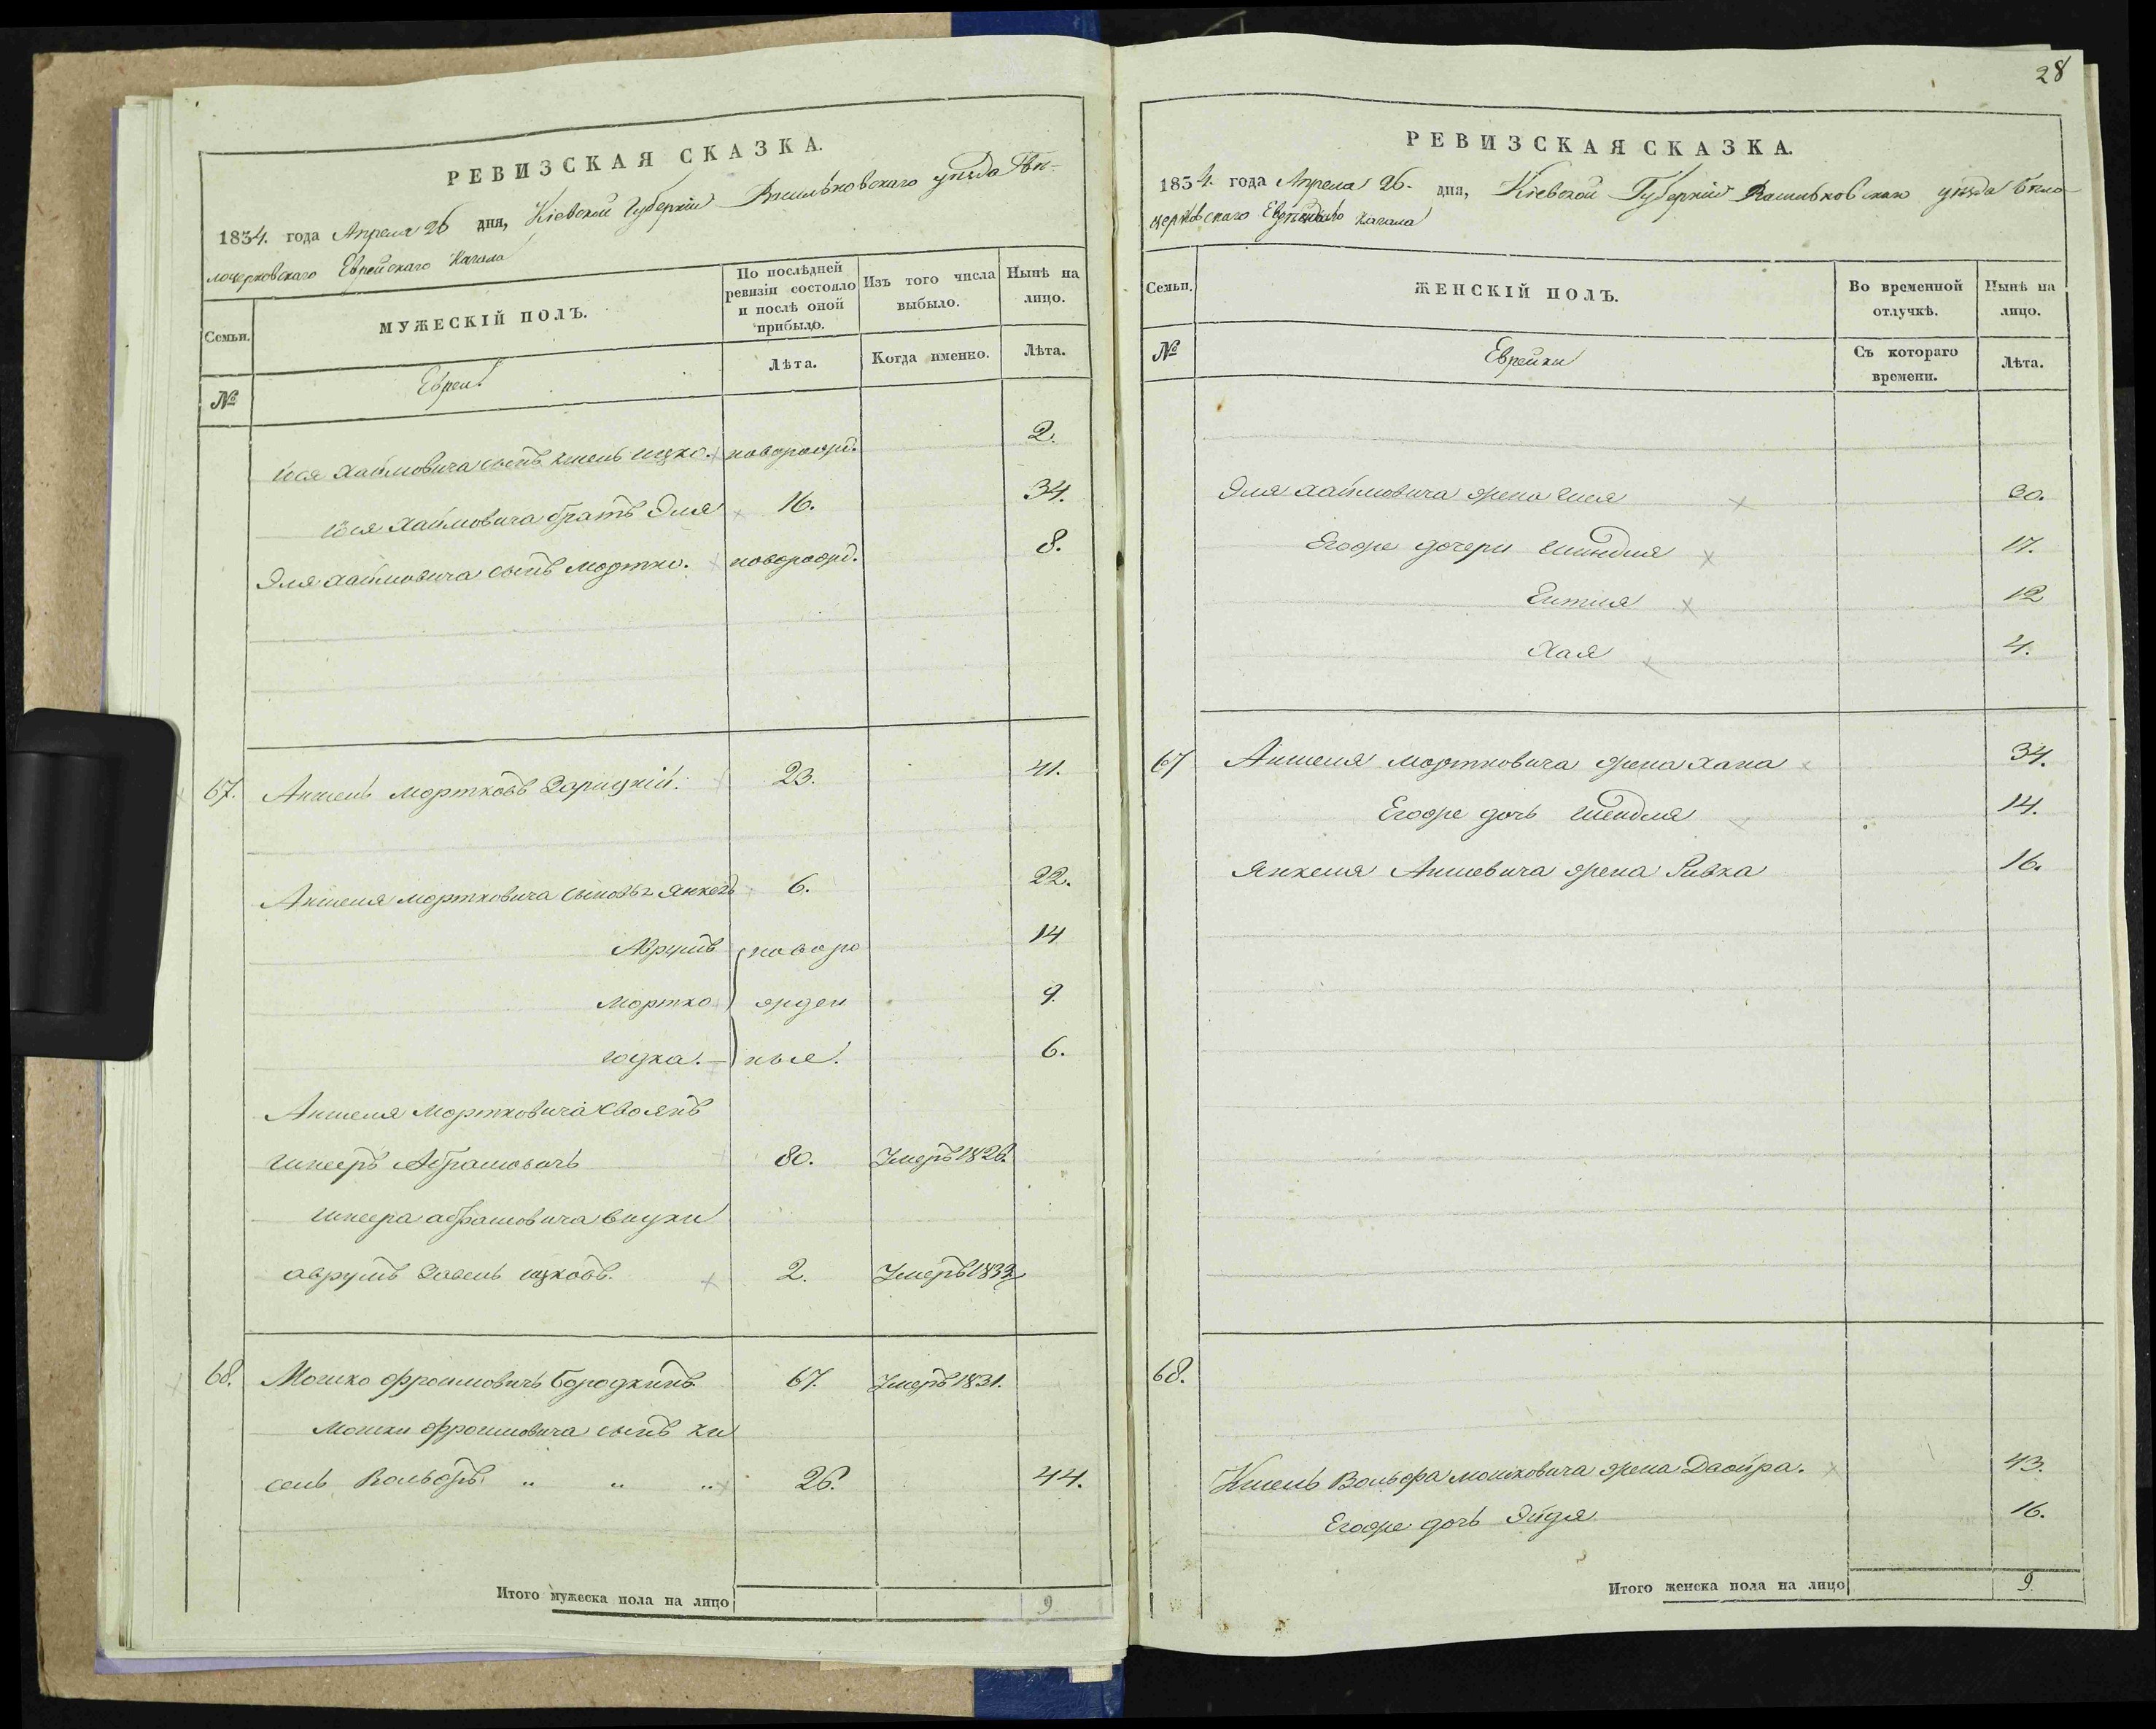 РЕВИЗСКАЯ СКАЗКА.
1834. года Апреля 26 дня, Кіевской Губерніи Васильковскаго уезда Бѣ-
лоцерковскаго Еврейскаго Кагала
Семьи.
МУЖЕСКІЙ ПОЛЪ.
По послѣдней ревизіи состояло и послѣ оной прибыло.
Изъ того числа выбыло.
Нынѣ на лицо.
№
Евреи
Лѣта.
Когда именно.
Лѣта.
Іося Хаймовича сынъ Ицко. новорожд. 2.
Іося Хаймовича братъ Эля 16. 34.
Эля Хаймовича сынъ Мортко. новорожд. 8.
67. Аншель Мортковъ Зарицкій. 23. 41.
Аншеля Мортковича сыновья Янкель 6. 22.
Аврумъ новоро 14
Мортко жден 9.
Юдка. ные. 6.
Аншеля Мортковича своякъ
Шнееръ Абрамовичъ 80. Умеръ 1826.
Шнеера Абрамовича внуки
Аврумъ Завель Ицковъ. 2. Умеръ 1833
68. Мошко Фроимовичъ Бородкинъ 67. Умеръ 1831.
Мошки Фроимовича сынъ Ки
сель Вольфъ. „ „ „ 26. 44.
Итого мужеска пола на лицо 9.
28
РЕВИЗСКАЯ СКАЗКА.
1834. года Апреля 26. дня, Кіевской Губерніи Васильковскаго уезда Бѣло
церковскаго Еврейскаго Кагала
Семьи.
ЖЕНСКІЙ ПОЛЪ.
Во временной отлучкѣ.
Нынѣ на лицо.
№
Еврейки
Съ котораго времени.
Лѣта.
Эля Хаймовича жена 30.
Егоже дочери Шиндля 17.
Ентля 12
Хая 4.
67 Аншеля Мортковича жена Хана 34.
Егоже дочь Шендля 14.
Янкеля Аншевича жена Ривка 16.
68.
Кисель Вольфа Мошковича жена Двойра. 43.
Егоже дочь Эйдя 16.
Итого женска пола на лицо 9.